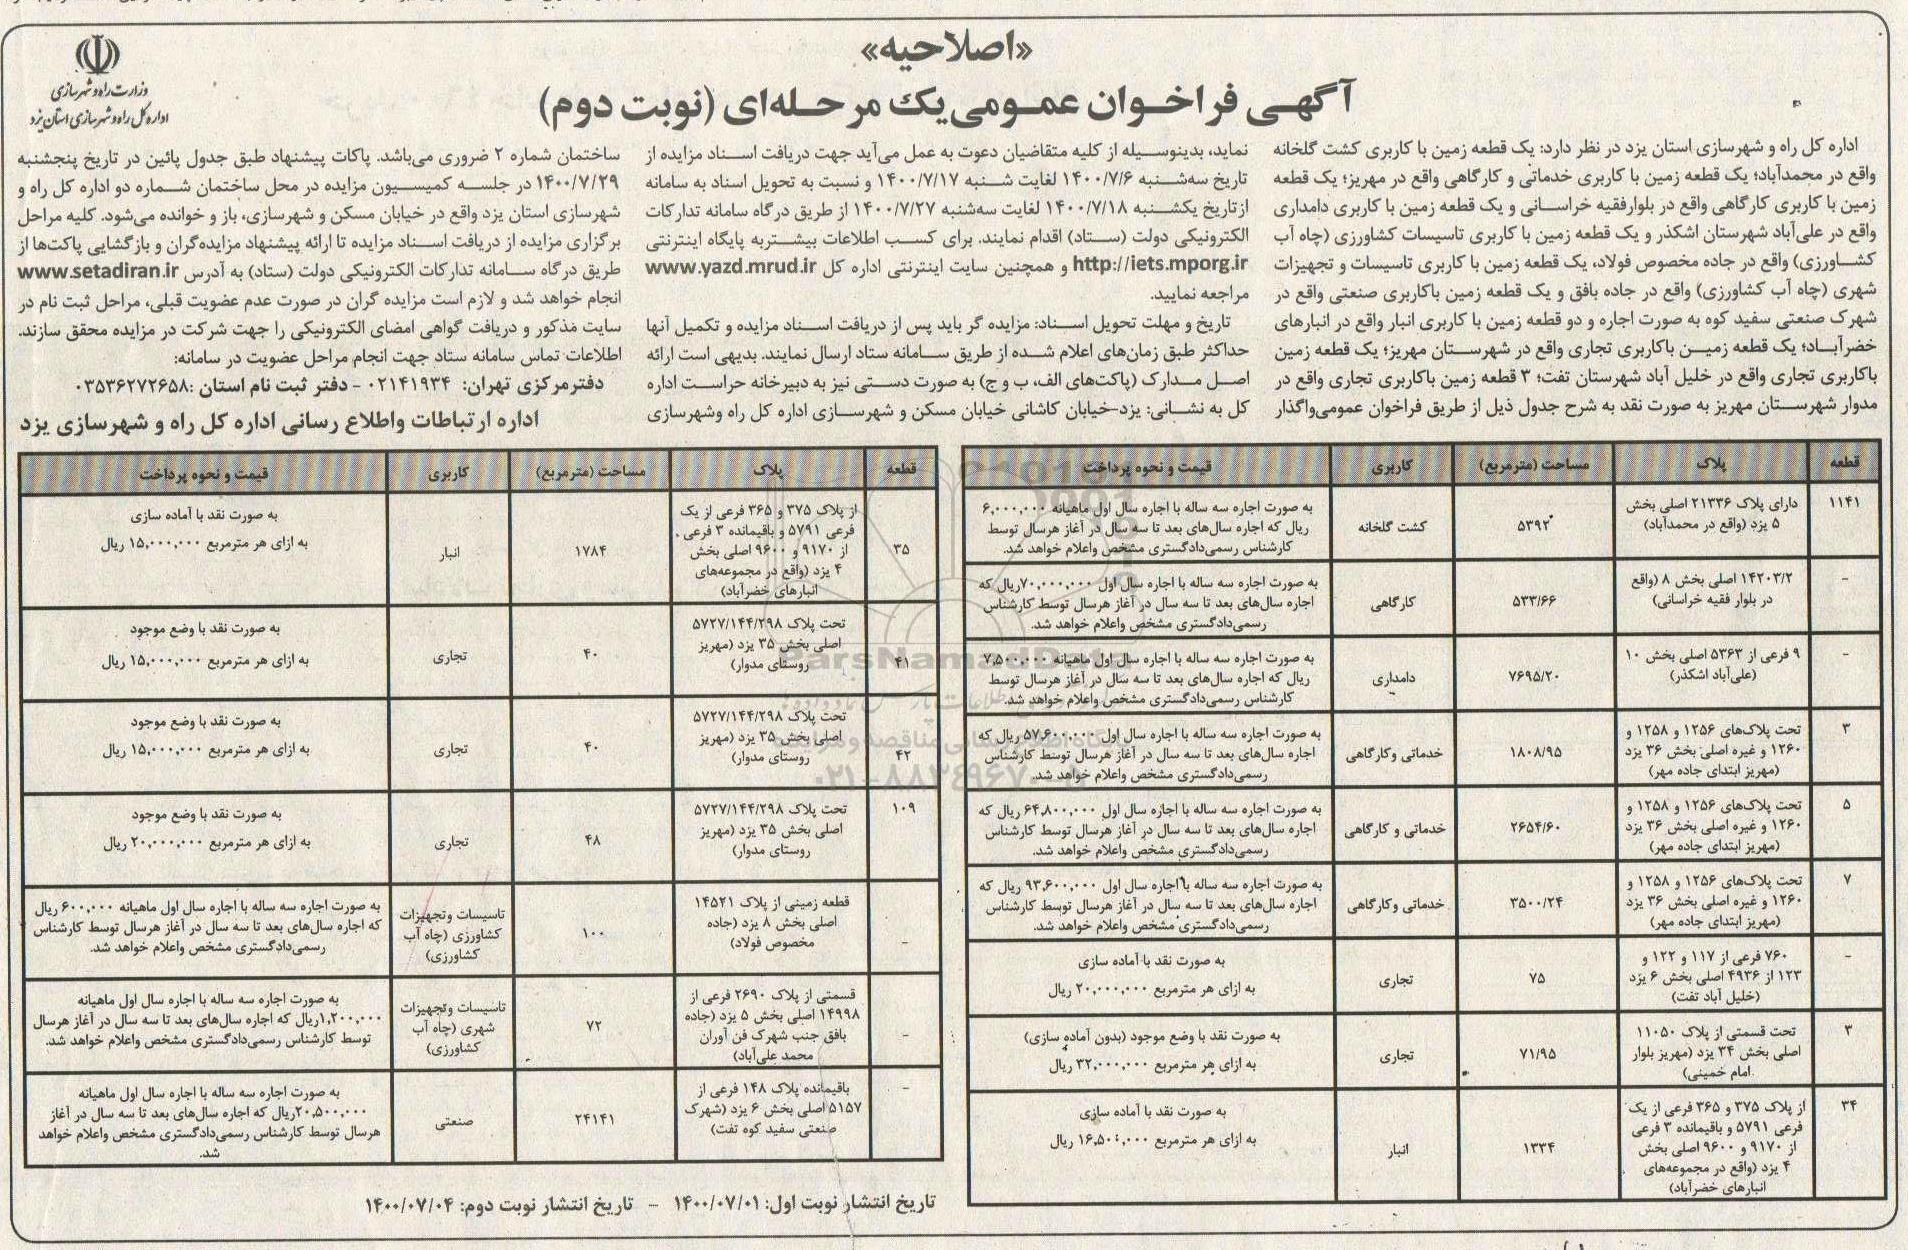 «اصلاحیه»
آگهی فراخوان عمومی یک مرحله‌ای (نوبت دوم)
وزارت راه و شهرسازی
اداره کل راه و شهرسازی استان یزد
اداره کل راه و شهرسازی استان یزد در نظر دارد: یک قطعه زمین با کاربری کشت گلخانه
واقع در محمدآباد؛ یک قطعه زمین با کاربری خدماتی و کارگاهی واقع در مهریز؛ یک قطعه
زمین با کاربری کارگاهی واقع در بلوارفقیه خراسانی و یک قطعه زمین با کاربری دامداری
واقع در علی‌آباد شهرستان اشکذر و یک قطعه زمین با کاربری تاسیسات کشاورزی (چاه آب
کشاورزی) واقع در جاده مخصوص فولاد، یک قطعه زمین با کاربری تاسیسات و تجهیزات
شهری (چاه آب کشاورزی) واقع در جاده بافق و یک قطعه زمین باکاربری صنعتی واقع در
شهرک صنعتی سفید کوه به صورت اجاره و دو قطعه زمین با کاربری انبار واقع در انبارهای
خضرآباد؛ یک قطعه زمین باکاربری تجاری واقع در شهرستان مهریز؛ یک قطعه زمین
باکاربری تجاری واقع در خلیل آباد شهرستان تفت؛ ۳ قطعه زمین باکاربری تجاری واقع در
مدوار شهرستان مهریز به صورت نقد به شرح جدول ذیل از طریق فراخوان عمومی‌واگذار
نماید، بدینوسیله از کلیه متقاضیان دعوت به عمل می‌آید جهت دریافت اسناد مزایده از
تاریخ سه‌شنبه ۱۴۰۰/۷/۶ لغایت شنبه ۱۴۰۰/۷/۱۷ و نسبت به تحویل اسناد به سامانه
ازتاریخ یکشنبه ۱۴۰۰/۷/۱۸ لغایت سه‌شنبه ۱۴۰۰/۷/۲۷ از طریق درگاه سامانه تدارکات
الکترونیکی دولت (ستاد) اقدام نمایند. برای کسب اطلاعات بیشتربه پایگاه اینترنتی
http://iets.mporg.ir و همچنین سایت اینترنتی اداره کل www.yazd.mrud.ir
مراجعه نمایید.
تاریخ و مهلت تحویل اسناد: مزایده گر باید پس از دریافت اسناد مزایده و تکمیل آنها
حداکثر طبق زمان‌های اعلام شده از طریق سامانه ستاد ارسال نمایند. بدیهی است ارائه
اصل مدارک (پاکت‌های الف، ب و ج) به صورت دستی نیز به دبیرخانه حراست اداره
کل به نشانی: یزد-خیابان کاشانی خیابان مسکن و شهرسازی اداره کل راه وشهرسازی
ساختمان شماره ۲ ضروری می‌باشد. پاکات پیشنهاد طبق جدول پائین در تاریخ پنجشنبه
۱۴۰۰/۷/۲۹ در جلسه کمیسیون مزایده در محل ساختمان شماره دو اداره کل راه و
شهرسازی استان یزد واقع در خیابان مسکن و شهرسازی، باز و خوانده می‌شود. کلیه مراحل
برگزاری مزایده از دریافت اسناد مزایده تا ارائه پیشنهاد مزایده‌گران و بازگشایی پاکت‌ها از
طریق درگاه سامانه تدارکات الکترونیکی دولت (ستاد) به آدرس www.setadiran.ir
انجام خواهد شد و لازم است مزایده گران در صورت عدم عضویت قبلی، مراحل ثبت نام در
سایت مذکور و دریافت گواهی امضای الکترونیکی را جهت شرکت در مزایده محقق سازند.
اطلاعات تماس سامانه ستاد جهت انجام مراحل عضویت در سامانه:
دفترمرکزی تهران: ۰۲۱۴۱۹۳۴ - دفتر ثبت نام استان :۰۳۵۳۶۲۷۲۶۵۸
اداره ارتباطات واطلاع رسانی اداره کل راه و شهرسازی یزد
قطعه پلاک مساحت (مترمربع) کاربری قیمت و نحوه پرداخت
۱۱۴۱ دارای پلاک ۲۱۳۳۶ اصلی بخش
۵ یزد (واقع در محمدآباد)
۵۳۹۲ کشت گلخانه
به صورت اجاره سه ساله با اجاره سال اول ماهیانه ۶,۰۰۰,۰۰۰
ریال که اجاره سال‌های بعد تا سه سال در آغاز هرسال توسط
کارشناس رسمی‌دادگستری مشخص واعلام خواهد شد.
- ۱۴۲۰۳/۲ اصلی بخش ۸ (واقع
در بلوار فقیه خراسانی)
۵۳۳/۶۶ کارگاهی
به صورت اجاره سه ساله با اجاره سال اول ۷۰,۰۰۰,۰۰۰ریال که
اجاره سال‌های بعد تا سه سال در آغاز هرسال توسط کارشناس
رسمی‌دادگستری مشخص واعلام خواهد شد.
- ۹ فرعی از ۵۳۶۳ اصلی بخش ۱۰
(علی‌آباد اشکذر)
۷۶۹۵/۲۰ دامداری
به صورت اجاره سه ساله با اجاره سال اول ماهیانه ۷,۵۰۰,۰۰۰
ریال که اجاره سال‌های بعد تا سه سال در آغاز هرسال توسط
کارشناس رسمی‌دادگستری مشخص واعلام خواهد شد.
۳ تحت پلاک‌های ۱۲۵۶ و ۱۲۵۸ و
۱۲۶۰ و غیره اصلی بخش ۳۶ یزد
(مهریز ابتدای جاده مهر)
۱۸۰۸/۹۵ خدماتی وکارگاهی
به صورت اجاره سه ساله با اجاره سال اول ۵۷,۶۰۰,۰۰۰ ریال که
اجاره سال‌های بعد تا سه سال در آغاز هرسال توسط کارشناس
رسمی‌دادگستری مشخص واعلام خواهد شد.
۵ تحت پلاک‌های ۱۲۵۶ و ۱۲۵۸ و
۱۲۶۰ و غیره اصلی بخش ۳۶ یزد
(مهریز ابتدای جاده مهر)
۲۶۵۴/۶۰ خدماتی و کارگاهی
به صورت اجاره سه ساله با اجازه سال اول ۶۴,۸۰۰,۰۰۰ ریال که
اجاره سال‌های بعد تا سه سال در آغاز هرسال توسط کارشناس
رسمی‌دادگستری مشخص واعلام خواهد شد.
۷ تحت پلاک‌های ۱۲۵۶ و ۱۲۵۸ و
۱۲۶۰ و غیره اصلی بخش ۳۶ یزد
(مهریز ابتدای جاده مهر)
۳۵۰۰/۲۴ خدماتی وکارگاهی
به صورت اجاره سه ساله با اجاره سال اول ۹۳,۶۰۰,۰۰۰ ریال که
اجاره سال‌های بعد تا سه سال در آغاز هرسال توسط کارشناس
رسمی‌دادگستری مشخص واعلام خواهد شد.
- ۷۶۰ فرعی از ۱۱۷ و ۱۲۲ و
۱۲۳ از ۴۹۳۶ اصلی بخش ۶ یزد
(خلیل آباد تفت)
۷۵ تجاری
به صورت نقد با آماده سازی
به ازای هر مترمربع ۲۰,۰۰۰,۰۰۰ ریال
۳ تحت قسمتی از پلاک ۱۱۰۵۰
اصلی بخش ۳۴ یزد (مهریز بلوار
امام خمینی)
۷۱/۹۵ تجاری
به صورت نقد با وضع موجود (بدون آماده سازی)
به ازای هر مترمربع ۳۲,۰۰۰,۰۰۰ ریال
۳۴ از پلاک ۳۷۵ و ۳۶۵ فرعی از یک
فرعی ۵۷۹۱ و باقیمانده ۳ فرعی
از ۹۱۷۰ و ۹۶۰۰ اصلی بخش
۴ یزد (واقع در مجموعه‌های
انبارهای خضرآباد)
۱۳۳۴ انبار
به صورت نقد با آماده سازی
به ازای هر مترمربع ۱۶,۵۰۰,۰۰۰ ریال
قطعه پلاک مساحت (مترمربع) کاربری قیمت و نحوه پرداخت
۳۵ از پلاک ۳۷۵ و ۳۶۵ فرعی از یک
فرعی ۵۷۹۱ و باقیمانده ۳ فرعی
از ۹۱۷۰ و ۹۶۰۰ اصلی بخش
۴ یزد (واقع در مجموعه‌های
انبارهای خضرآباد)
۱۷۸۴ انبار
به صورت نقد با آماده سازی
به ازای هر مترمربع ۱۵,۰۰۰,۰۰۰ ریال
۴۱ تحت پلاک ۵۷۲۷/۱۴۴/۲۹۸
اصلی بخش ۳۵ یزد (مهریز
روستای مدوار)
۴۰ تجاری
به صورت نقد با وضع موجود
به ازای هر مترمربع ۱۵,۰۰۰,۰۰۰ ریال
۴۲ تحت پلاک ۵۷۲۷/۱۴۴/۲۹۸
اصلی بخش ۳۵ یزد (مهریز
روستای مدوار)
۴۰ تجاری
به صورت نقد با وضع موجود
به ازای هر مترمربع ۱۵,۰۰۰,۰۰۰ ریال
۱۰۹ تحت پلاک ۵۷۲۷/۱۴۴/۲۹۸
اصلی بخش ۳۵ یزد (مهریز
روستای مدوار)
۴۸ تجاری
به صورت نقد با وضع موجود
به ازای هر مترمربع ۲۰,۰۰۰,۰۰۰ ریال
- قطعه زمینی از پلاک ۱۴۵۲۱
اصلی بخش ۸ یزد (جاده
مخصوص فولاد)
۱۰۰ تاسیسات وتجهیزات
کشاورزی (چاه آب
کشاورزی)
به صورت اجاره سه ساله با اجاره سال اول ماهیانه ۶۰۰,۰۰۰ ریال
که اجاره سال‌های بعد تا سه سال در آغاز هرسال توسط کارشناس
رسمی‌دادگستری مشخص واعلام خواهد شد.
- قسمتی از پلاک ۲۶۹۰ فرعی از
۱۴۹۹۸ اصلی بخش ۵ یزد (جاده
بافق جنب شهرک فن آوران
محمد علی‌آباد)
۷۲ تاسیسات وتجهیزات
شهری (چاه آب
کشاورزی)
به صورت اجاره سه ساله با اجاره سال اول ماهیانه
۱,۲۰۰,۰۰۰ریال که اجاره سال‌های بعد تا سه سال در آغاز هرسال
توسط کارشناس رسمی‌دادگستری مشخص واعلام خواهد شد.
- باقیمانده پلاک ۱۴۸ فرعی از
۵۱۵۷ اصلی بخش ۶ یزد (شهرک
صنعتی سفید کوه تفت)
۲۴۱۴۱ صنعتی
به صورت اجاره سه ساله با اجاره سال اول ماهیانه
۲۰,۵۰۰,۰۰۰ریال که اجاره سال‌های بعد تا سه سال در آغاز
هرسال توسط کارشناس رسمی‌دادگستری مشخص واعلام خواهد
شد.
تاریخ انتشار نوبت اول: ۱۴۰۰/۰۷/۰۱ - تاریخ انتشار نوبت دوم: ۱۴۰۰/۰۷/۰۴
ParsNamadData
۰۲۱-۸۸۳۴۹۶۷۰-۵